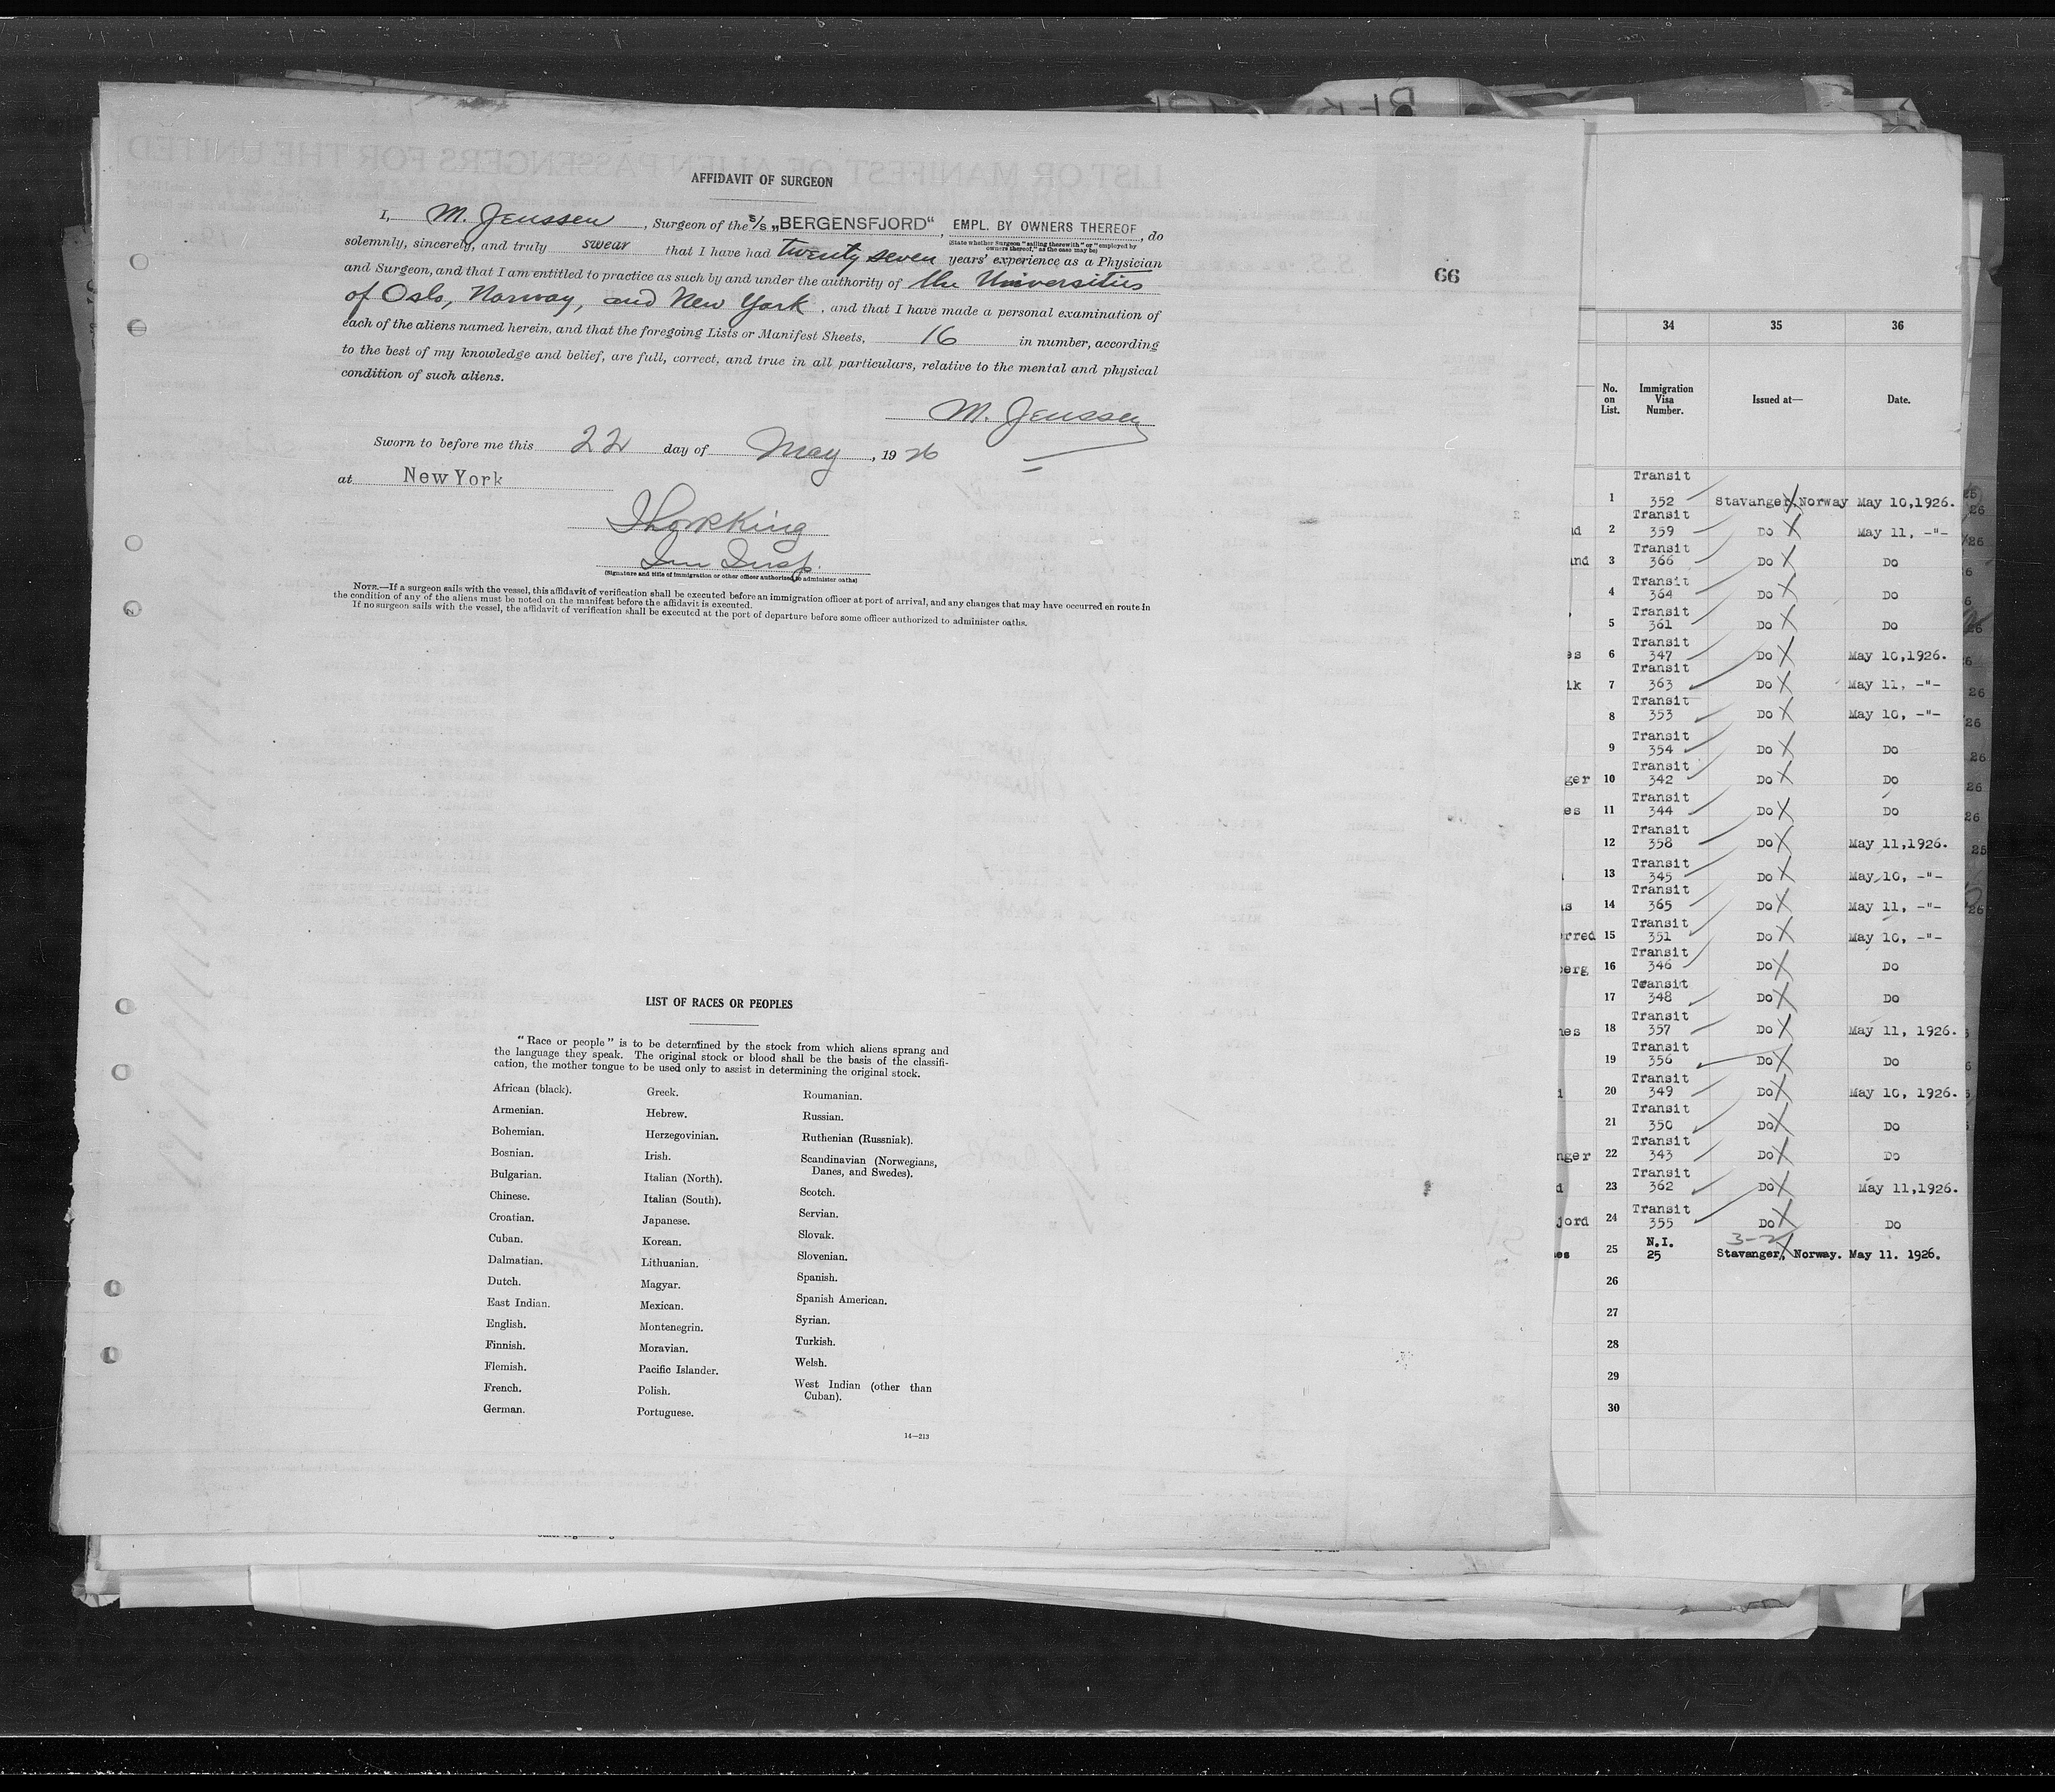 AFFIDAVIT OF SURGEON
I, M. Jenssen, Surgeon of the S/S „BERGENSFJORD“, EMPL. BY OWNERS THEREOF, do
(State whether Surgeon "sailing therewith" or "employed by owners thereof," as the case may be)
solemnly, sincerely, and truly swear that I have had twenty seven years' experience as a Physician
and Surgeon, and that I am entitled to practice as such by and under the authority of the Universities
of Oslo, Norway, and New York, and that I have made a personal examination of
each of the aliens named herein, and that the foregoing Lists or Manifest Sheets, 16 in number, according
to the best of my knowledge and belief, are full, correct, and true in all particulars, relative to the mental and physical
condition of such aliens.
M. Jenssen
Sworn to before me this 22 day of May, 1926
at New York
(Signature and title of immigration or other officer authorized to administer oaths)
NOTE.—If a surgeon sails with the vessel, this affidavit of verification shall be executed before an immigration officer at port of arrival, and any changes that may have occurred en route in
the condition of any of the aliens must be noted on the manifest before the affidavit is executed.
If no surgeon sails with the vessel, the affidavit of verification shall be executed at the port of departure before some officer authorized to administer oaths.
66
LIST OF RACES OR PEOPLES
"Race or people" is to be determined by the stock from which aliens sprang and
the language they speak. The original stock or blood shall be the basis of the classifi-
cation, the mother tongue to be used only to assist in determining the original stock.
African (black).
Armenian.
Bohemian.
Bosnian.
Bulgarian.
Chinese.
Croatian.
Cuban.
Dalmatian.
Dutch.
East Indian.
English.
Finnish.
Flemish.
French.
German.
Greek.
Hebrew.
Herzegovinian.
Irish.
Italian (North).
Italian (South).
Japanese.
Korean.
Lithuanian.
Magyar.
Mexican.
Montenegrin.
Moravian.
Pacific Islander.
Polish.
Portuguese.
Roumanian.
Russian.
Ruthenian (Russniak).
Scandinavian (Norwegians,
Danes, and Swedes).
Scotch.
Servian.
Slovak.
Slovenian.
Spanish.
Spanish American.
Syrian.
Turkish.
Welsh.
West Indian (other than
Cuban).
14—213
34 35 36
No. on List. Immigration Visa Number. Issued at— Date.
1 Transit 352 Stavanger, Norway May 10,1926.
2 Transit 359 Do May 11, -"-
3 Transit 366 Do Do
4 Transit 364 Do Do
5 Transit 361 Do Do
6 Transit 347 Do May 10,1926.
7 Transit 363 Do May 11, -"-
8 Transit 353 Do May 10, -"-
9 Transit 354 Do Do
10 Transit 342 Do Do
11 Transit 344 Do Do
12 Transit 358 Do May 11,1926.
13 Transit 345 Do May 10, -"-
14 Transit 365 Do May 11, -"-
15 Transit 351 Do May 10, -"-
16 Transit 346 Do Do
17 Transit 348 Do Do
18 Transit 357 Do May 11, 1926.
19 Transit 356 Do Do
20 Transit 349 Do May 10, 1926.
21 Transit 350 Do Do
22 Transit 343 Do Do
23 Transit 362 Do May 11,1926.
24 Transit 355 Do Do
25 N.I. 25 Stavanger, Norway. May 11. 1926.
26
27
28
29
30